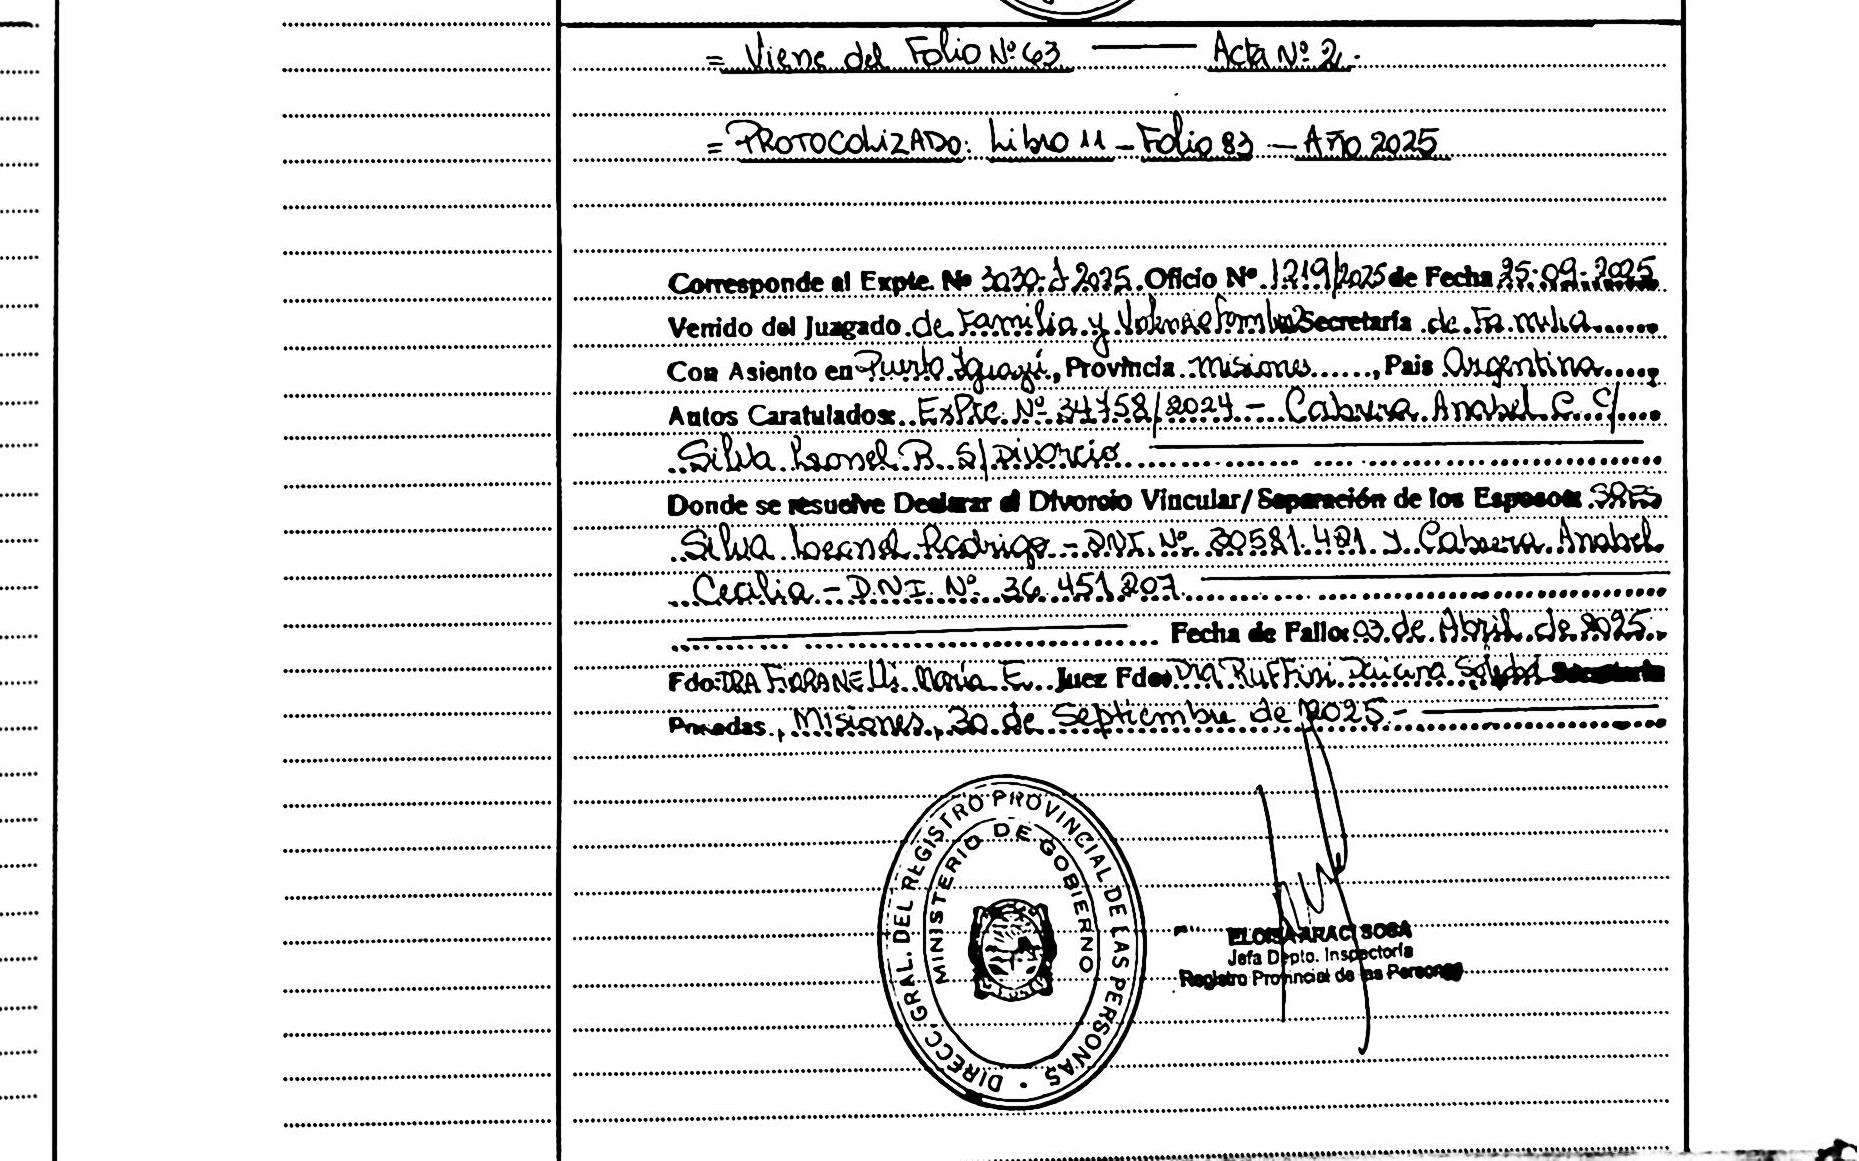 = Viene del Folio Nº 63 — Acta Nº 2.
= PROTOCOLIZADO: Libro 11 – Folio 83 – Año 2025
Corresponde al Expte. Nº 3030-J-2025. Oficio Nº 1219/2025 de Fecha 25-09-2025
Venido del Juzgado de Familia y Violencia Familiar Secretaría de Familia
Con Asiento en Puerto Iguazú, Provincia Misiones, Pais Argentina
Autos Caratulados: Expte. Nº 34758/2024 – Cabrera Anabel C. C/
Silva Leonel R. S/ Divorcio
Donde se resuelve Declarar el Divorcio Vincular/Separación de los Esposos: SRES
Silva Leonel Rodrigo – DNI. Nº 30581.421 y Cabrera Anabel
Cecilia – D.N.I. Nº 36.451.207
Fecha de Fallo: 03 de Abril de 2025.
Fdo: DRA FIORANELLI María E. Juez Fdo: DRA Ruffini Daiana Soledad Secretaria
Posadas, Misiones, 30 de Septiembre de 2025.-
DIRECC. GRAL. DEL REGISTRO PROVINCIAL DE LAS PERSONAS
MINISTERIO DE GOBIERNO
ELOISA ARACI SOSA
Jefa Depto. Inspectoría
Registro Provincial de las Personas